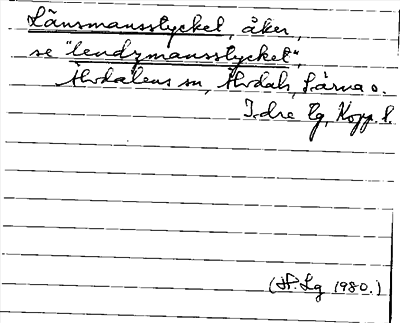 Länsmansstycket, åker,
se "lendzmansstycket",
Älvdalens sn, Älvdals, Särna o.
Idre tg, Kopp. l.
(H. Lg 1980.)